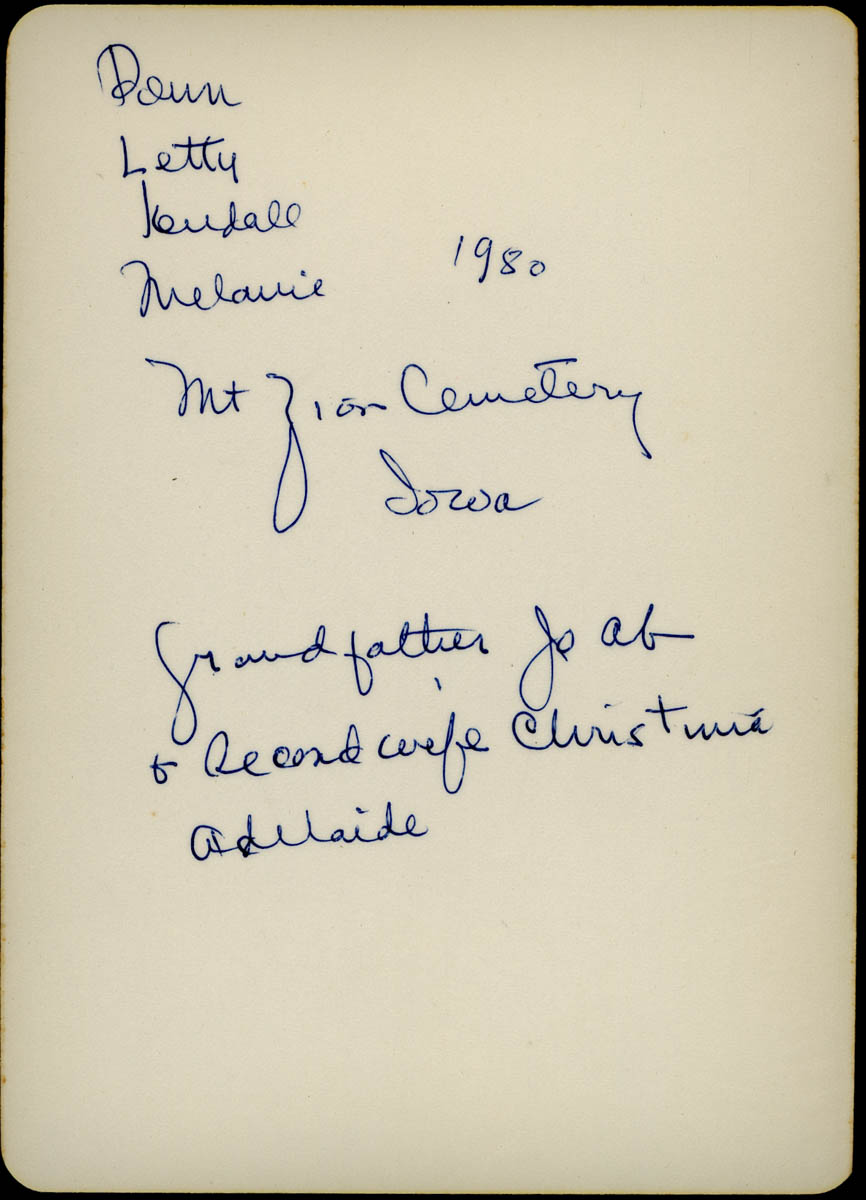 Donn
Letty
Kendall
Melanie 1980
Mt Zion Cemetery
Iowa
Grandfather Jo ab
& Second wife Christina
Adelaide